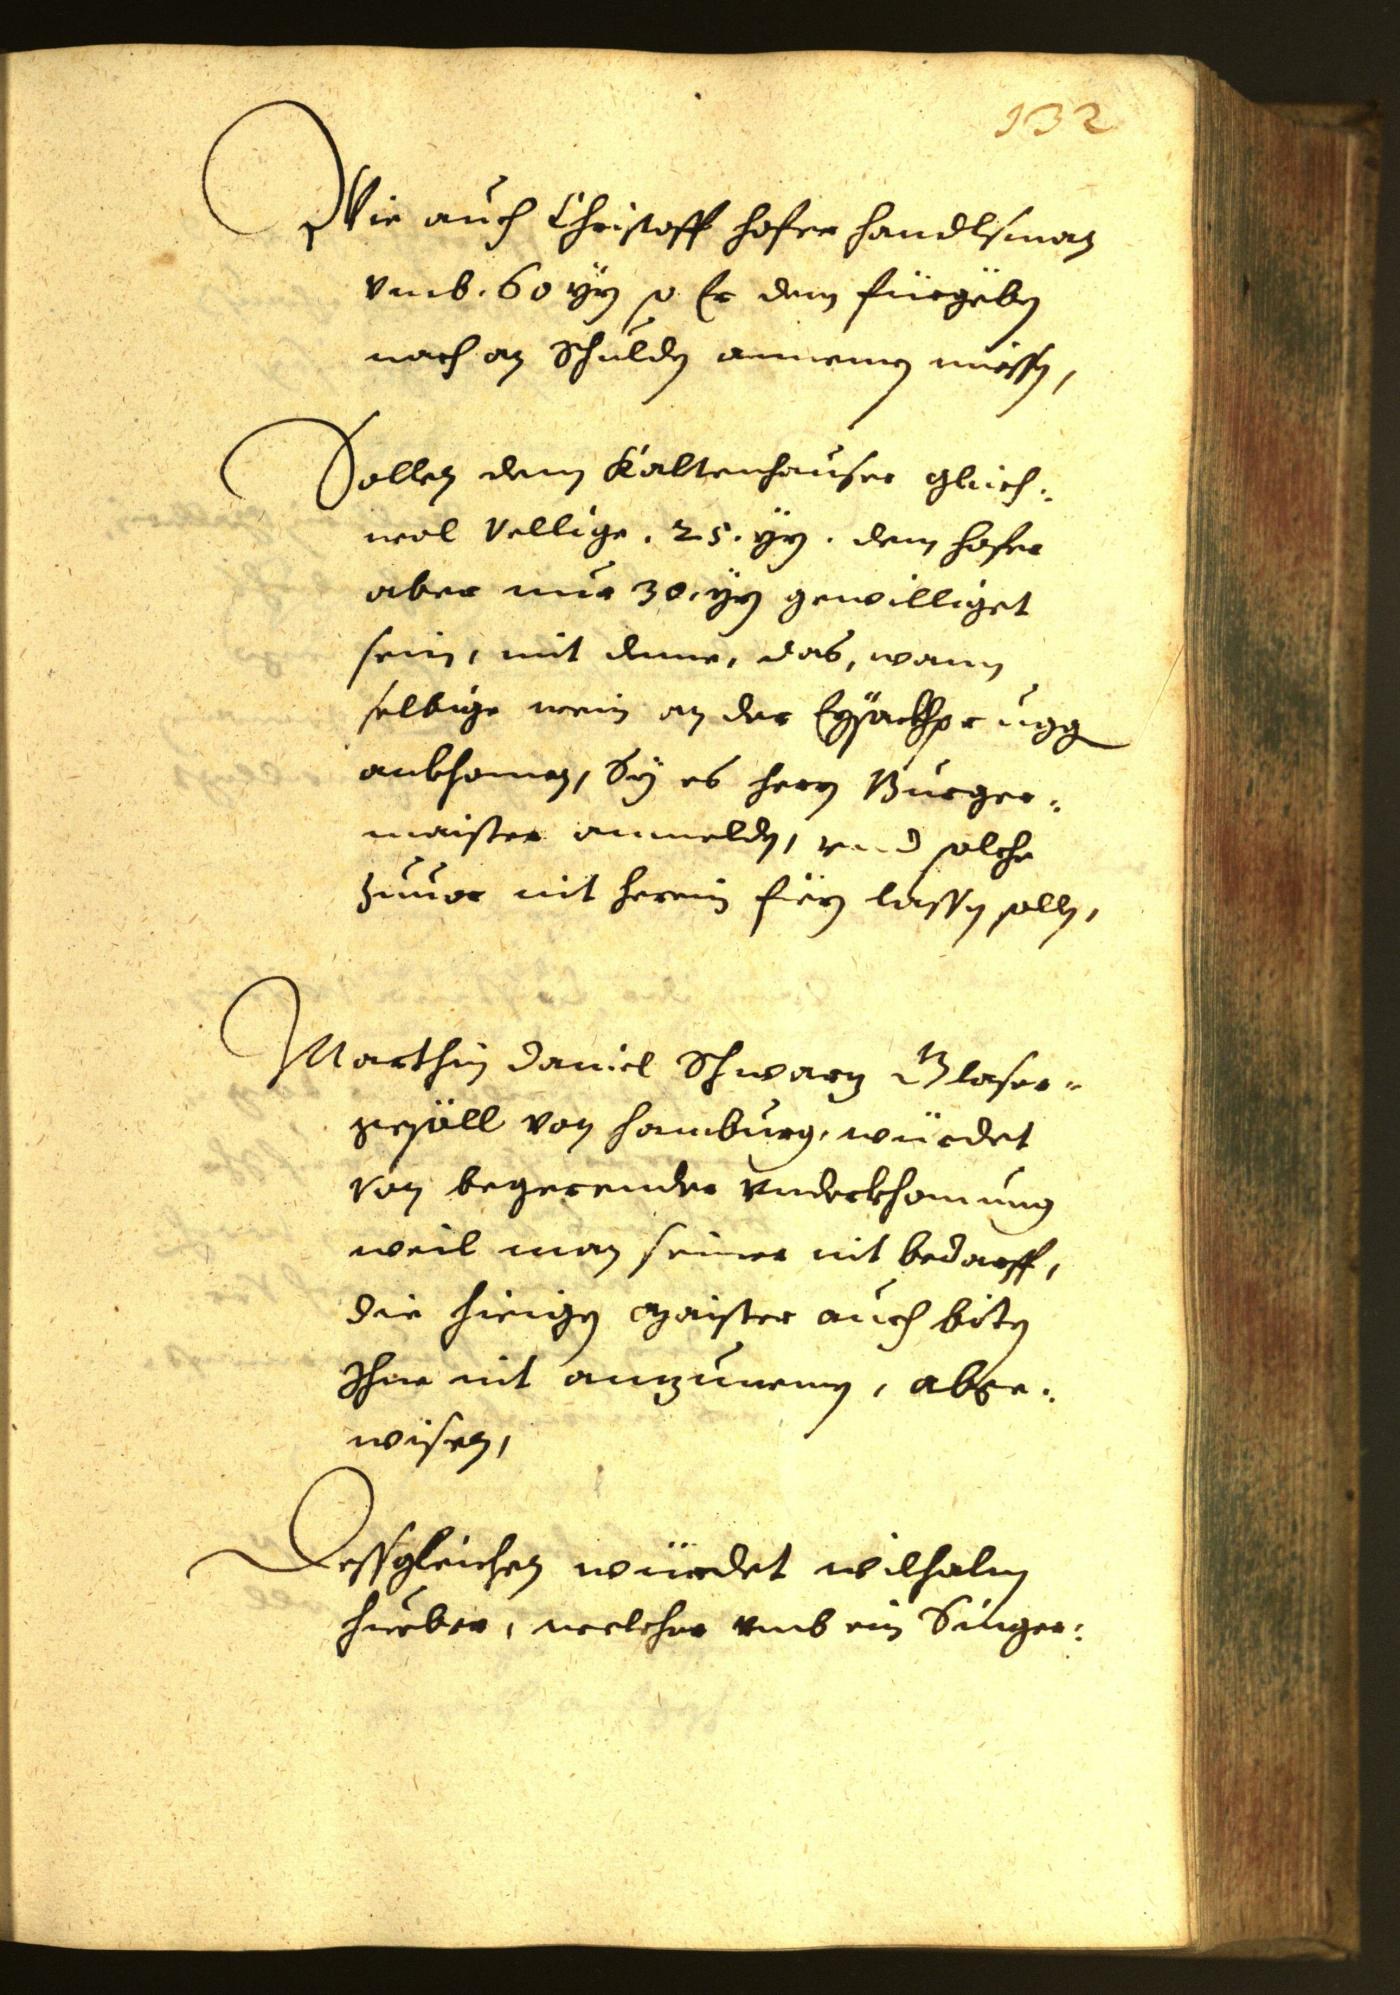 132
Wie auch Christoff Hofer Handlsman
vmb. 60 Yrn so Er dem fürgeben
nach an Schulden annemen miessen,
Sollen dem Kaltenhauser gleich:
wol völlige. 25. Yrn. dem Hofer
aber nur 30. Yrn gewilliget
sein, mit deme, das, wann
selbige wein an der Eysackhprugg
ankhomen, Sy es Herrn Burger:
maister anmelden, vnd solche
zuuor nit herein fiern lassen sollen,
Marthin Daniel Schwarz Glaser:
gesöll von Hamburg, würdet
von begerender vnderkhomung
weil man seiner nit bedarff,
die hieigen Maister auch biten
Ihne nit anzunemen, abge:
wisen,
Dessgleichen würdet Wilhalm
Hueber, welcher vmb ein Singer: